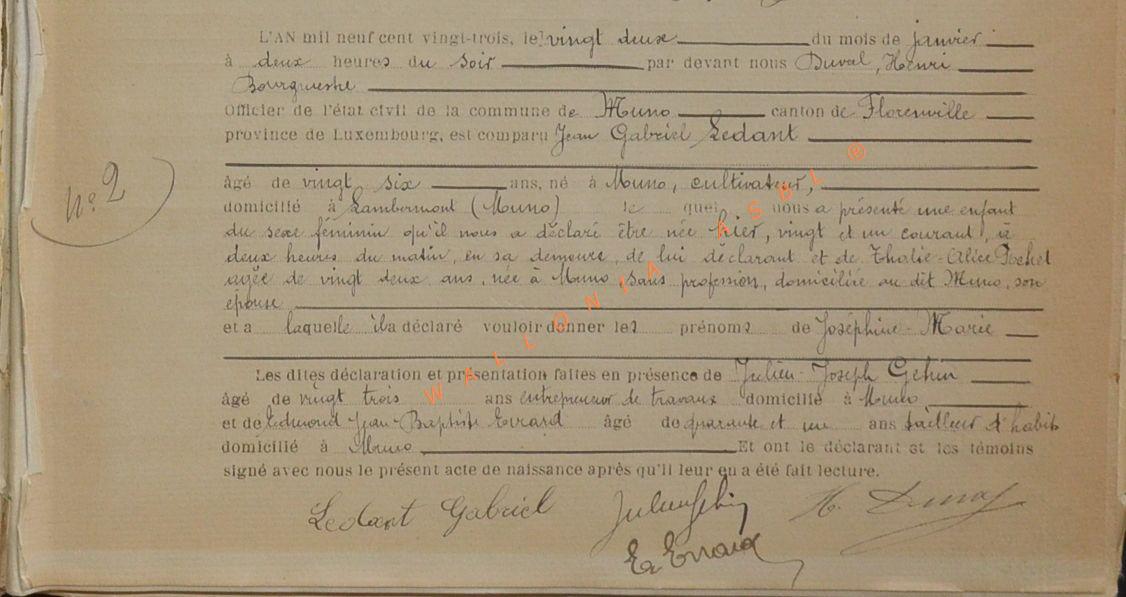 L'AN mil neuf cent vingt-trois, le vingt deux du mois de janvier
à deux heures du soir par devant nous Duval, Henri
Bourgmestre
Officier de l'état civil de la commune de Muno canton de Florenville
province de Luxembourg, est comparu Jean Gabriel Ledant
N° 2
âgé de vingt six ans, né à Muno, cultivateur,
domicilié à Lambermont (Muno) le quel nous a présenté une enfant
du sexe féminin qu'il nous a déclaré être née hier, vingt et un courant, à
deux heures du matin, en sa demeure, de lui déclarant et de Thalie-Alice Pochet
agée de vingt deux ans, née à Muno, sans profession, domiciliée au dit Muno, son
épouse
et a laquelle il a déclaré vouloir donner les prénoms de Joséphine-Marie
Les dites déclaration et présentation faites en présence de Julien-Joseph Gehin
âgé de vingt trois ans entrepreneur de travaux domicilié à Muno
et de Edmond Jean-Baptiste Evrard âgé de quarante et un ans tailleur d'habits
domicilié à Muno Et ont le déclarant et les témoins
signé avec nous le présent acte de naissance après qu'il leur en a été fait lecture.
Ledant Gabriel Julien Gehin H. Duval
Ed Evrard
WALLONIA ASBL ®